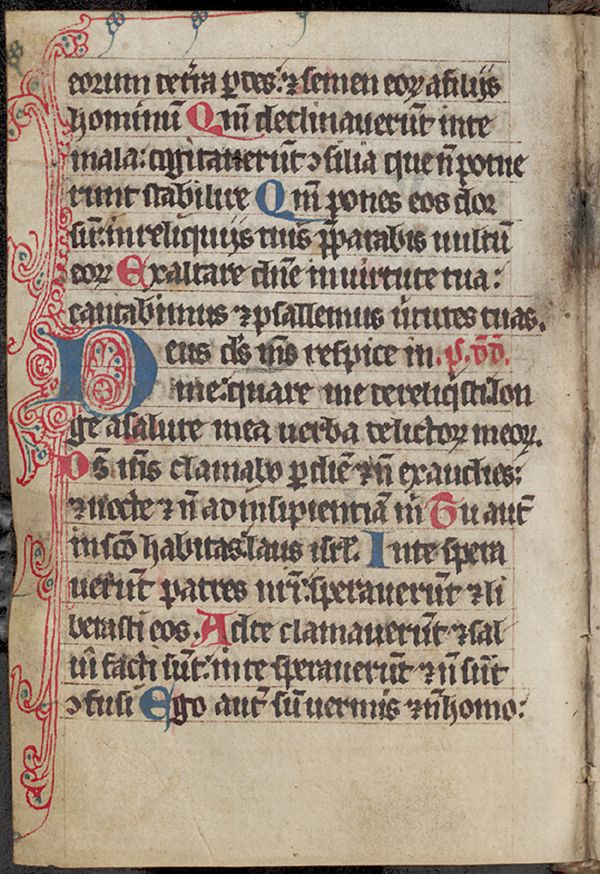 eorum de tr̄ra ꝑdes: ⁊ semen eoꝝ a filijs
hominū Qm̄ declinauerūt in te
mala: cogitauerūt ↄsilia que n̄ potue
runt stabilire Qm̄ pones eos dor
sū: in reliquijs tuis p̄parabis uultū
eoꝝ Exaltare dn̄e in uirtute tua:
cantabimus ⁊ psallemus uirtutes tuas.
Deus ds̄ ms̄ respice in .ps̄. dd̄.
me: quare me dereliq̇sti: lon
ge a salute mea uerba delictoꝝ meoꝝ.
Ds̄ ms̄ clamabo ꝑ diē ⁊ n̄ exaudies:
⁊ nocte ⁊ n̄ ad insipientiā m̄ Tu aut̄
in sc̄o habitas: laus isrl̄. In te spera
uerūt patres nr̄i: sperauerūt ⁊ li
berasti eos. Ad te clamauerūt ⁊ sal
ui facti sūt: in te sperauerūt ⁊ n̄ sūt
ↄfusi Ego aut̄ sū uermis ⁊ n̄ homo: